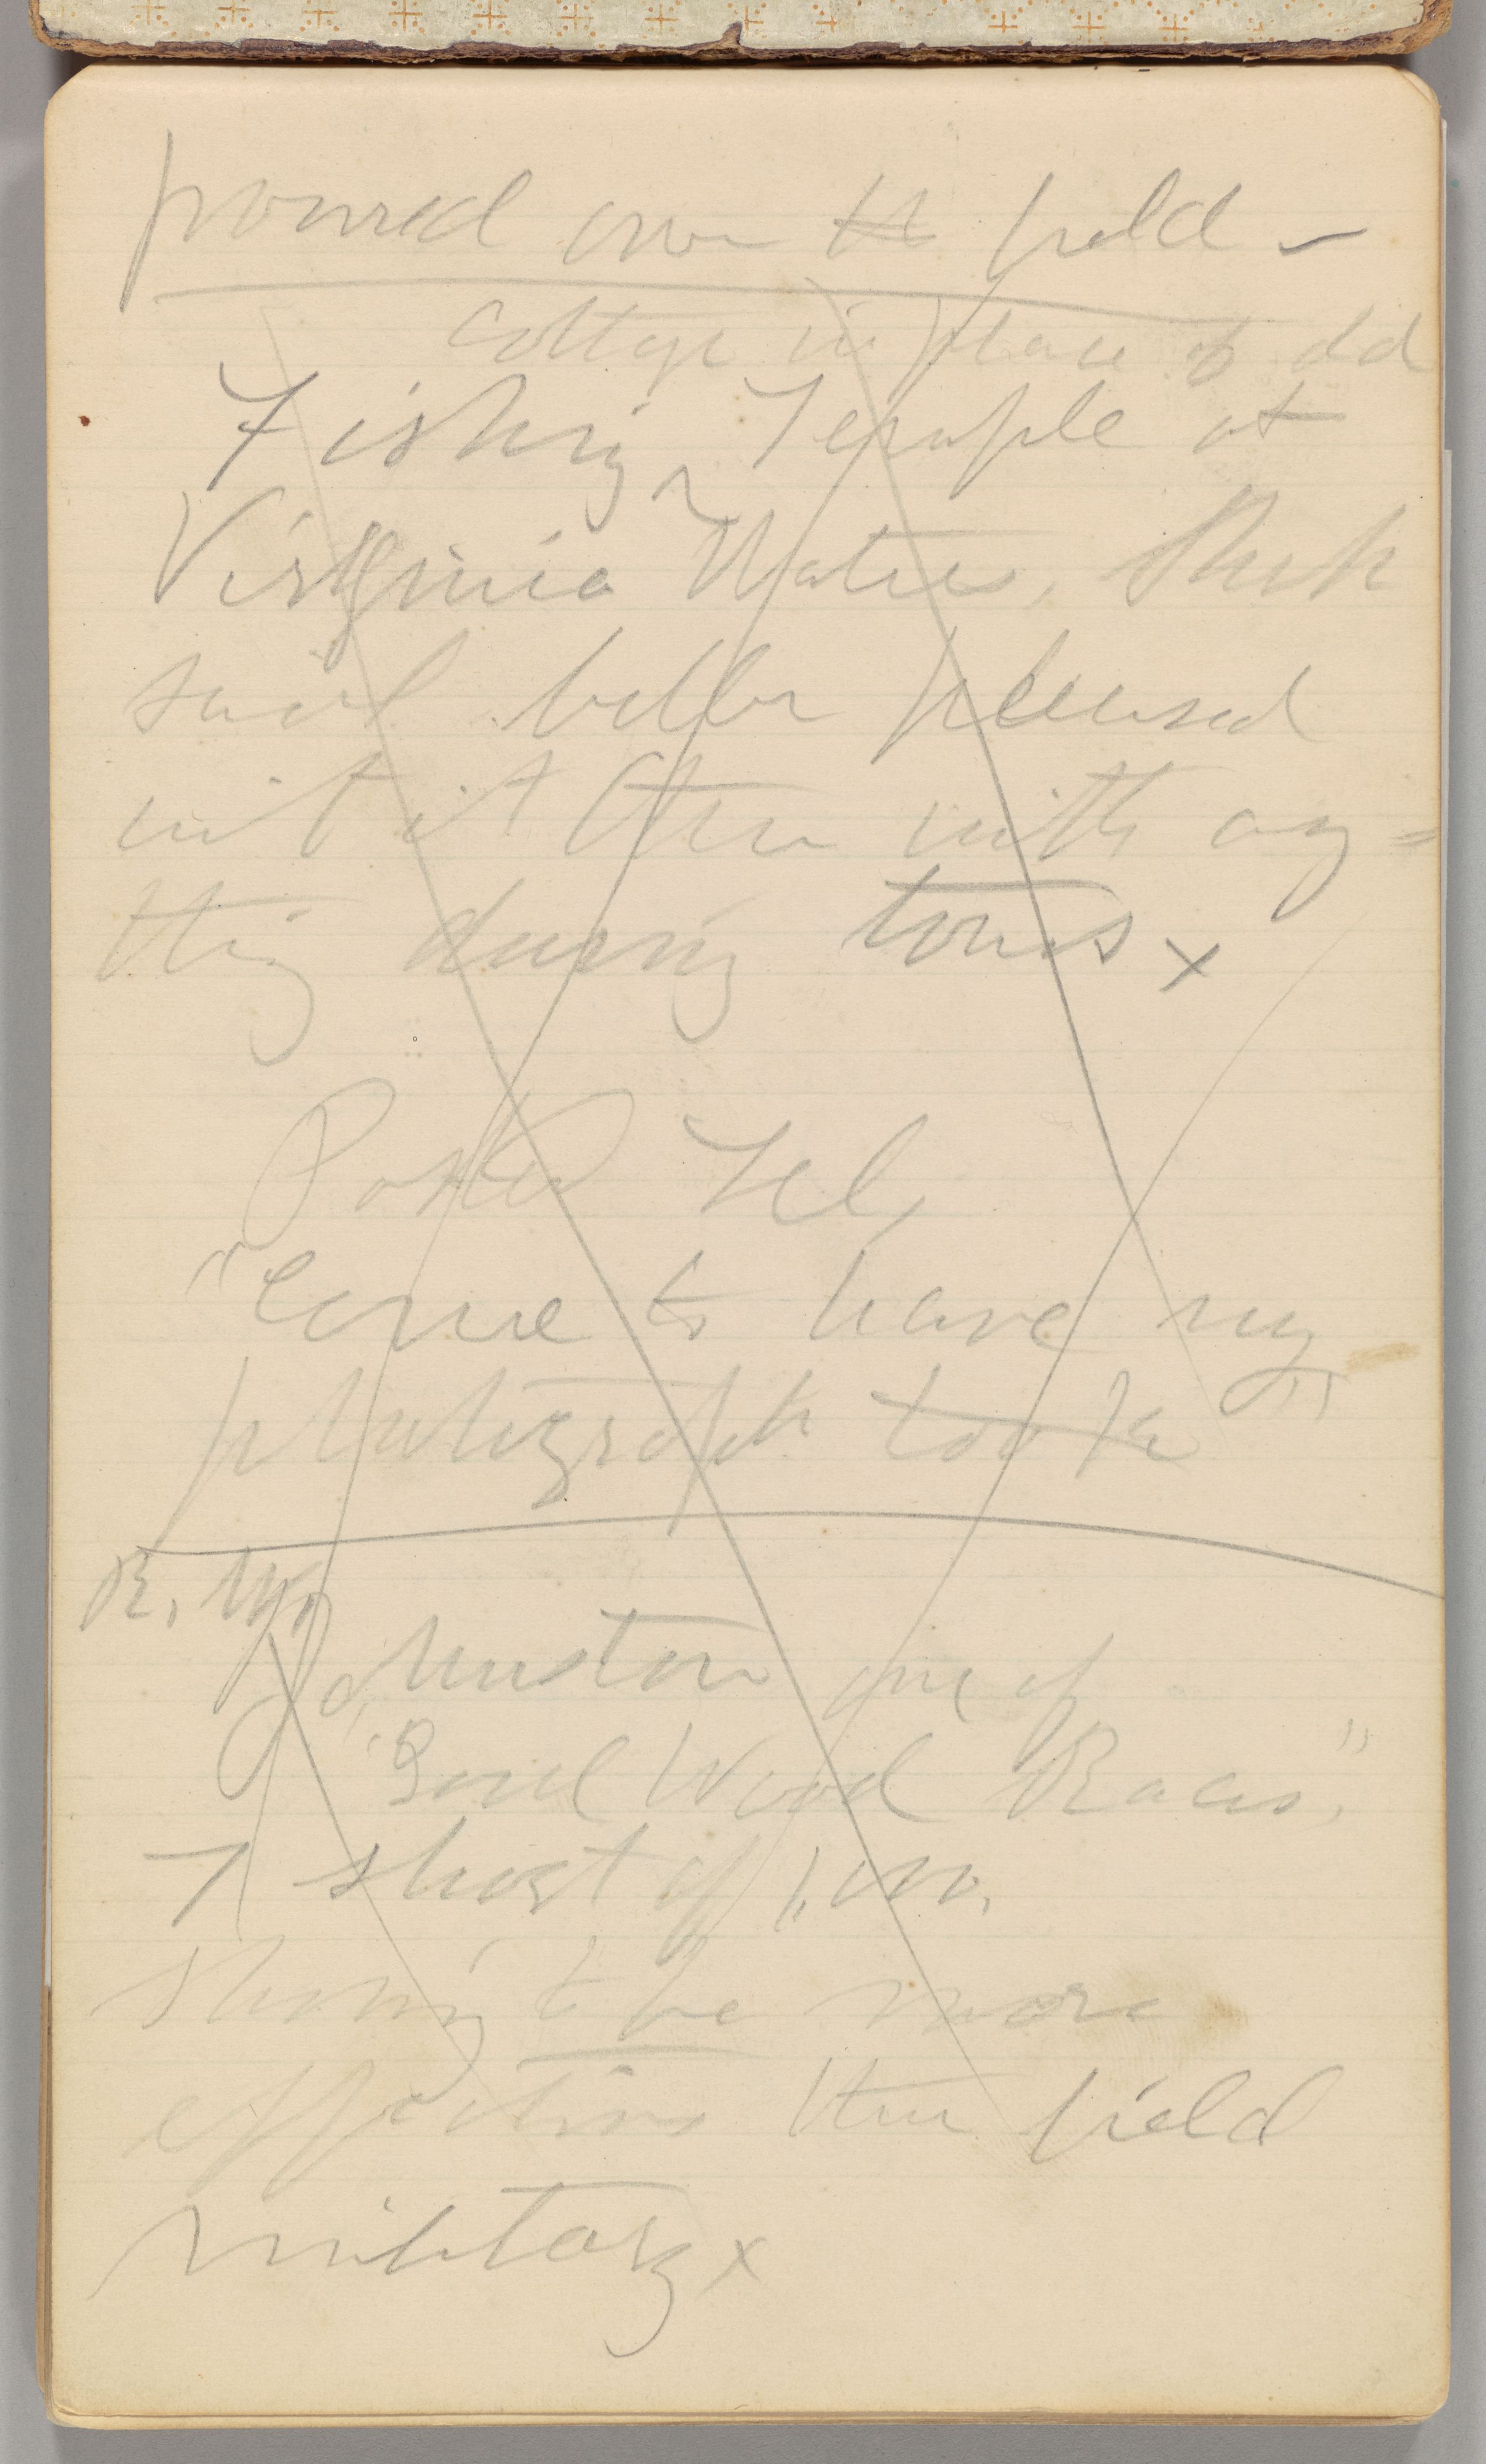 poured over the field –
cottage in place of old
Fishing Temple at
Virginia Waters, Shah
said better pleased
with it then with any =
thing during tour x
Posted Tel,
"Come to have my
photograph took"
R. W.
Johnston one of
"Good Wood Races,"
short of
more
effective then field
military x